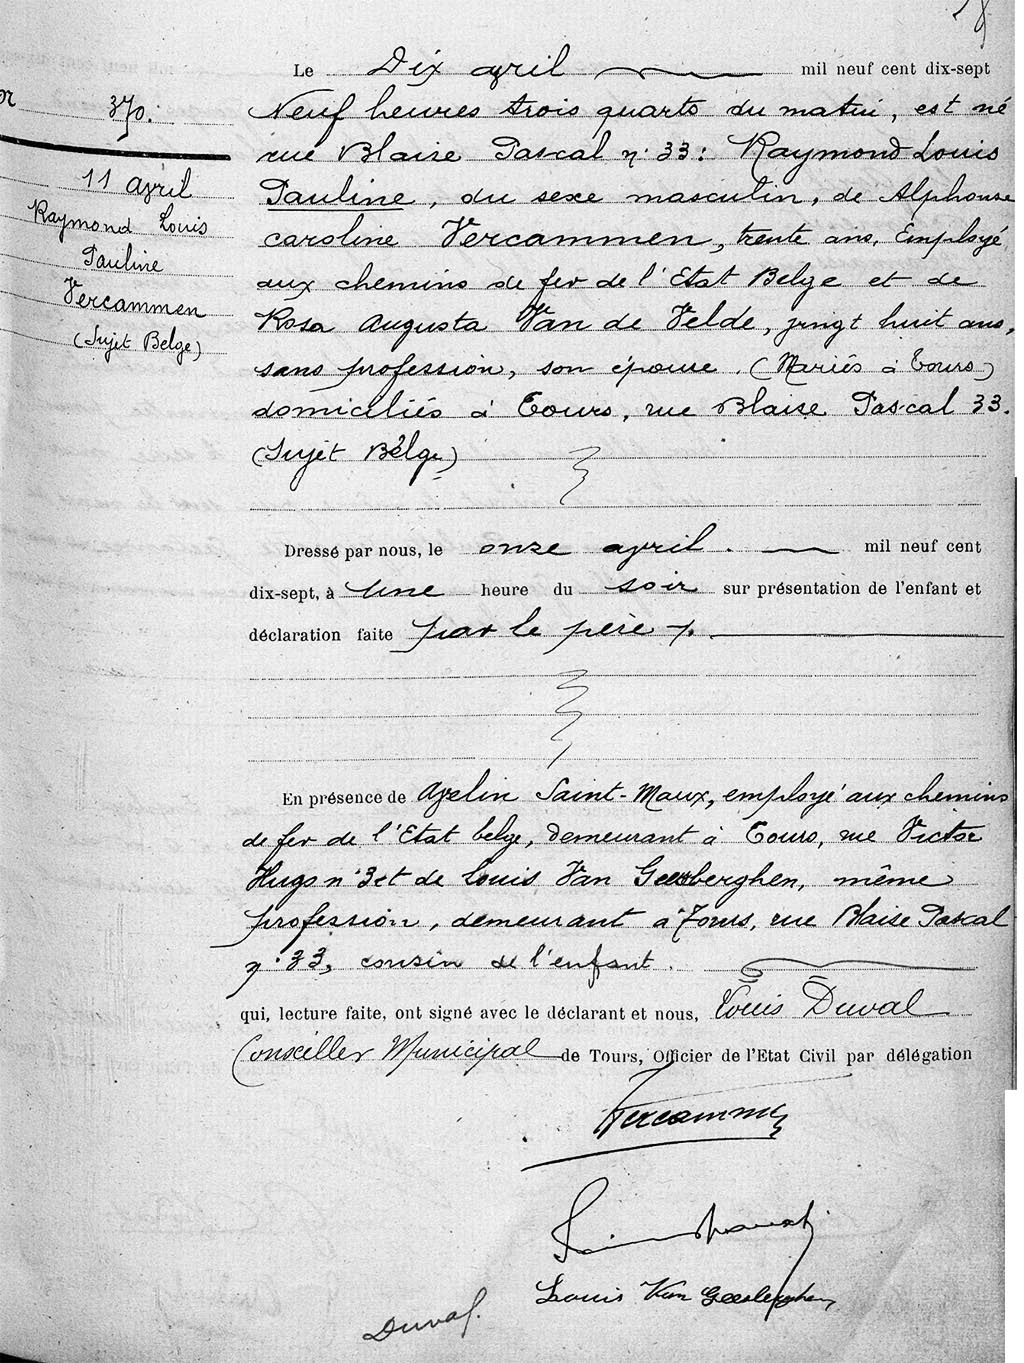 370.
11 avril
Raymond Louis
Pauline
Vercammen
(Sujet Belge)
Le Dix avril mil neuf cent dix-sept
Neuf heures trois quarts du matin, est né
rue Blaise Pascal n° 33: Raymond Louis
Pauline, du sexe masculin, de Alphonse
caroline Vercammen, trente ans, Employé
aux chemins de fer de l'Etat Belge et de
Rosa Augusta Van de Velde, vingt huit ans,
sans profession, son épouse. (Mariés à Tours)
domiciliés à Tours, rue Blaise Pascal 33.
(Sujèt Bélge)
Dressé par nous, le onze avril. mil neuf cent
dix-sept, à une heure du soir sur présentation de l'enfant et
déclaration faite par le père
En présence de Azelin Saint-Maux, employé aux chemins
de fer de l'Etat belge, demeurant à Tours, rue Victor
Hugo n° 3 et de Louis Van Geesberghen, même
profession, demeurant à Tours, rue Blaise Pascal
n° 33, cousin de l'enfant.
qui, lecture faite, ont signé avec le déclarant et nous, Louis Duval
Conseiller Municipal de Tours, Officier de l'Etat Civil par délégation
Vercammen
Louis Van Geesberghen
Duval.